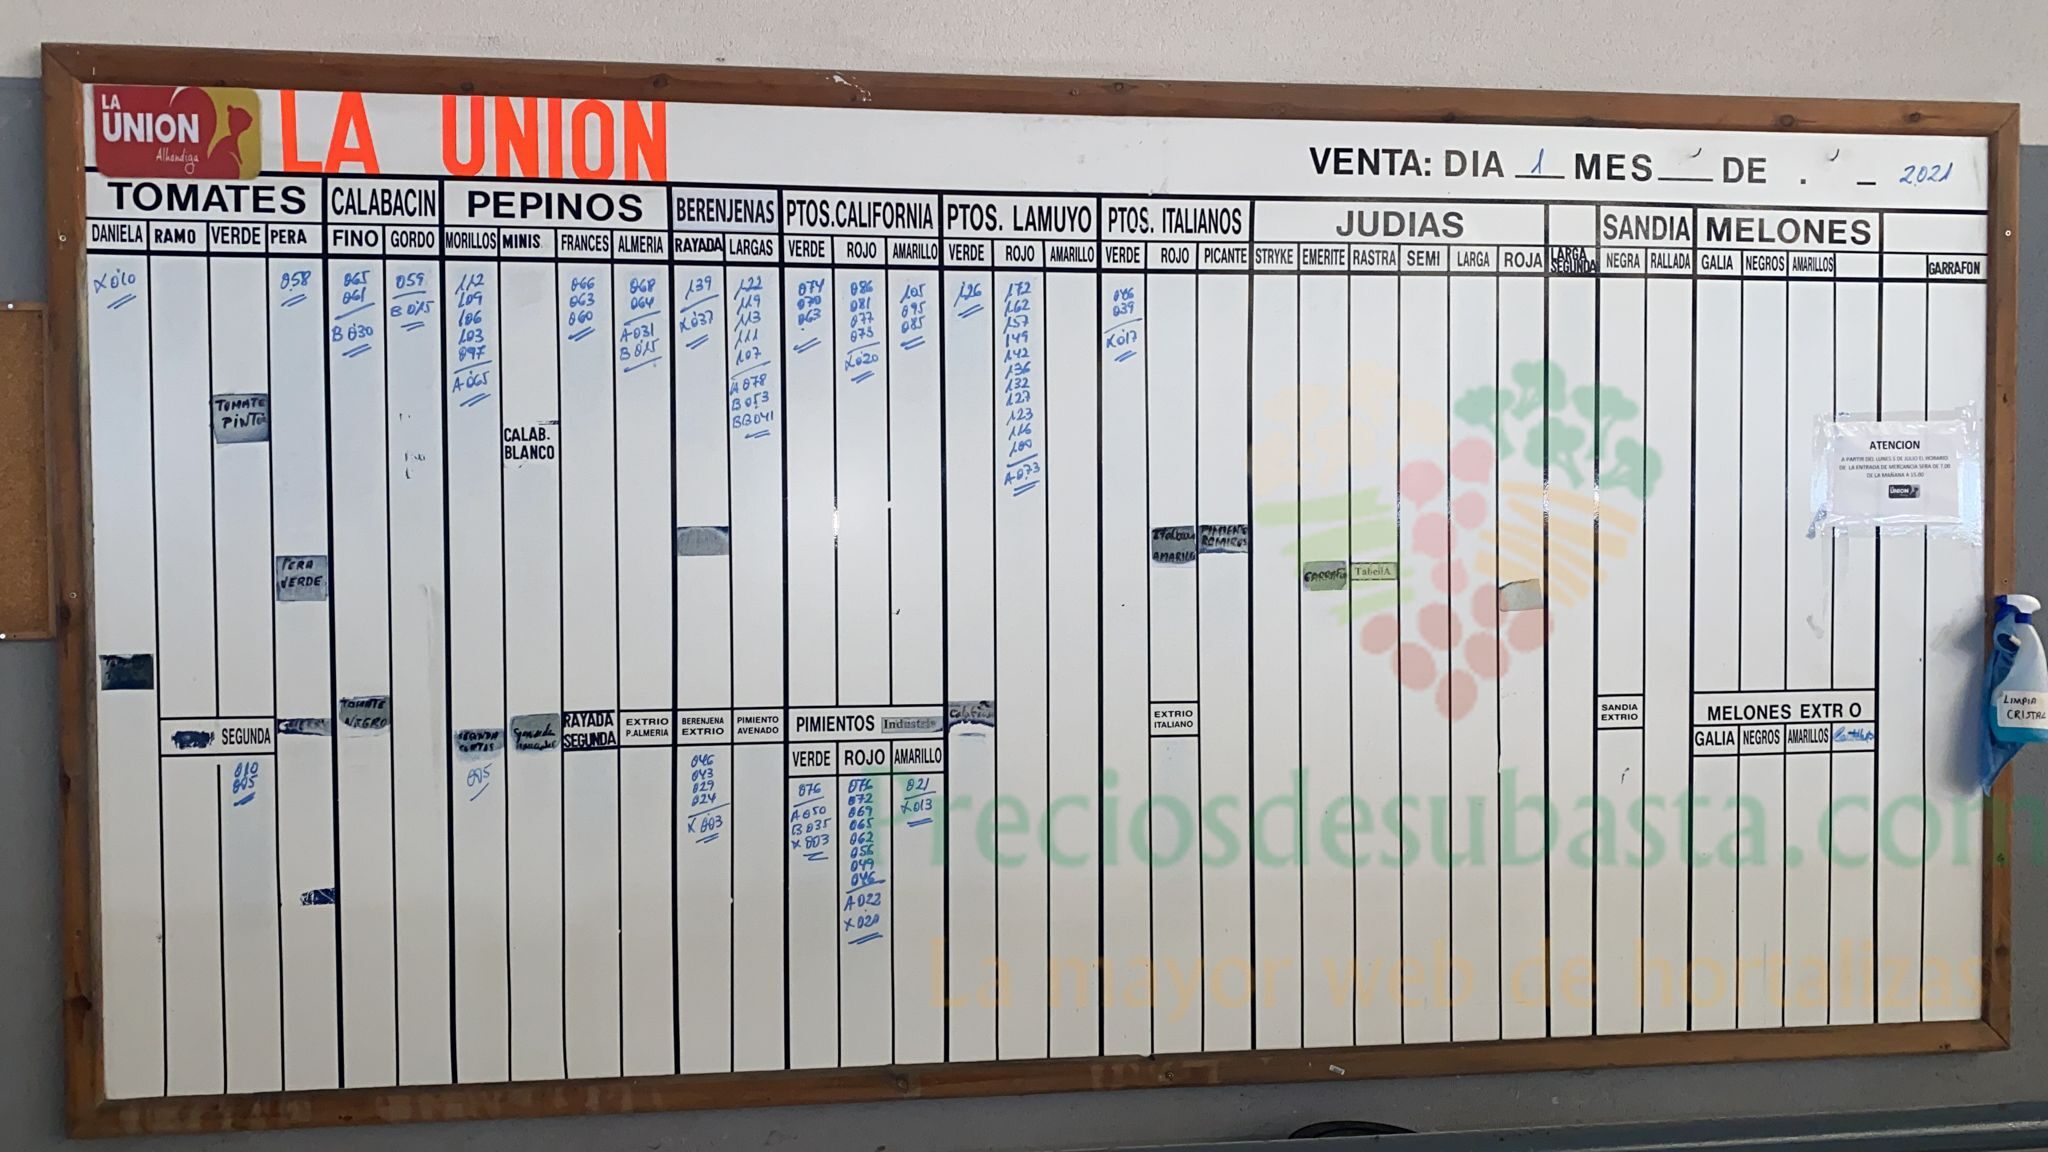 LA UNION
Alhóndiga
LA UNION
VENTA: DIA 1 MES DE . 2021
TOMATES CALABACIN PEPINOS BERENJENAS PTOS.CALIFORNIA PTOS. LAMUYO PTOS. ITALIANOS JUDIAS SANDIA MELONES
DANIELA RAMO VERDE PERA FINO GORDO MORILLOS MINIS FRANCES ALMERIA RAYADA LARGAS VERDE ROJO AMARILLO VERDE ROJO AMARILLO VERDE ROJO PICANTE STRYKE EMERITE RASTRA SEMI LARGA ROJA LARGA SEGUNDA NEGRA RALLADA GALIA NEGROS AMARILLOS GARRAFON
X 010
058
065
061
B 030
059
B 015
112
109
106
103
097
A 065
066
063
060
068
064
A 031
B 015
139
X 037
122
119
113
111
107
A 078
B 053
BB 041
074
070
063
086
081
077
073
X 020
105
095
085
126
172
162
157
149
142
136
132
127
123
116
100
A 073
046
039
X 017
TOMATE
PINTO
CALAB.
BLANCO
PERA
VERDE
AMARILLO
PIMIENTO
TabellA
ATENCION
A PARTIR DEL LUNES 5 DE JULIO EL HORARIO
DE LA ENTRADA DE MERCANCIA SERA DE 7.00
DE LA MAÑANA A 15.00
UNION
LIMPIA
CRISTAL
TOMATE
NEGRO
SEGUNDA
SEGUNDA
RAYADA
SEGUNDA
EXTRIO
P.ALMERIA
BERENJENA
EXTRIO
PIMIENTO
AVENADO
PIMIENTOS Industria
VERDE ROJO AMARILLO
EXTRIO
ITALIANO
SANDIA
EXTRIO
MELONES EXTRO
GALIA NEGROS AMARILLOS
010
005
005
046
043
029
024
X 003
076
A 050
B 035
X 003
076
072
069
065
062
056
049
046
A 022
X 020
021
X 013
Preciosdesubasta.com
La mayor web de hortalizas